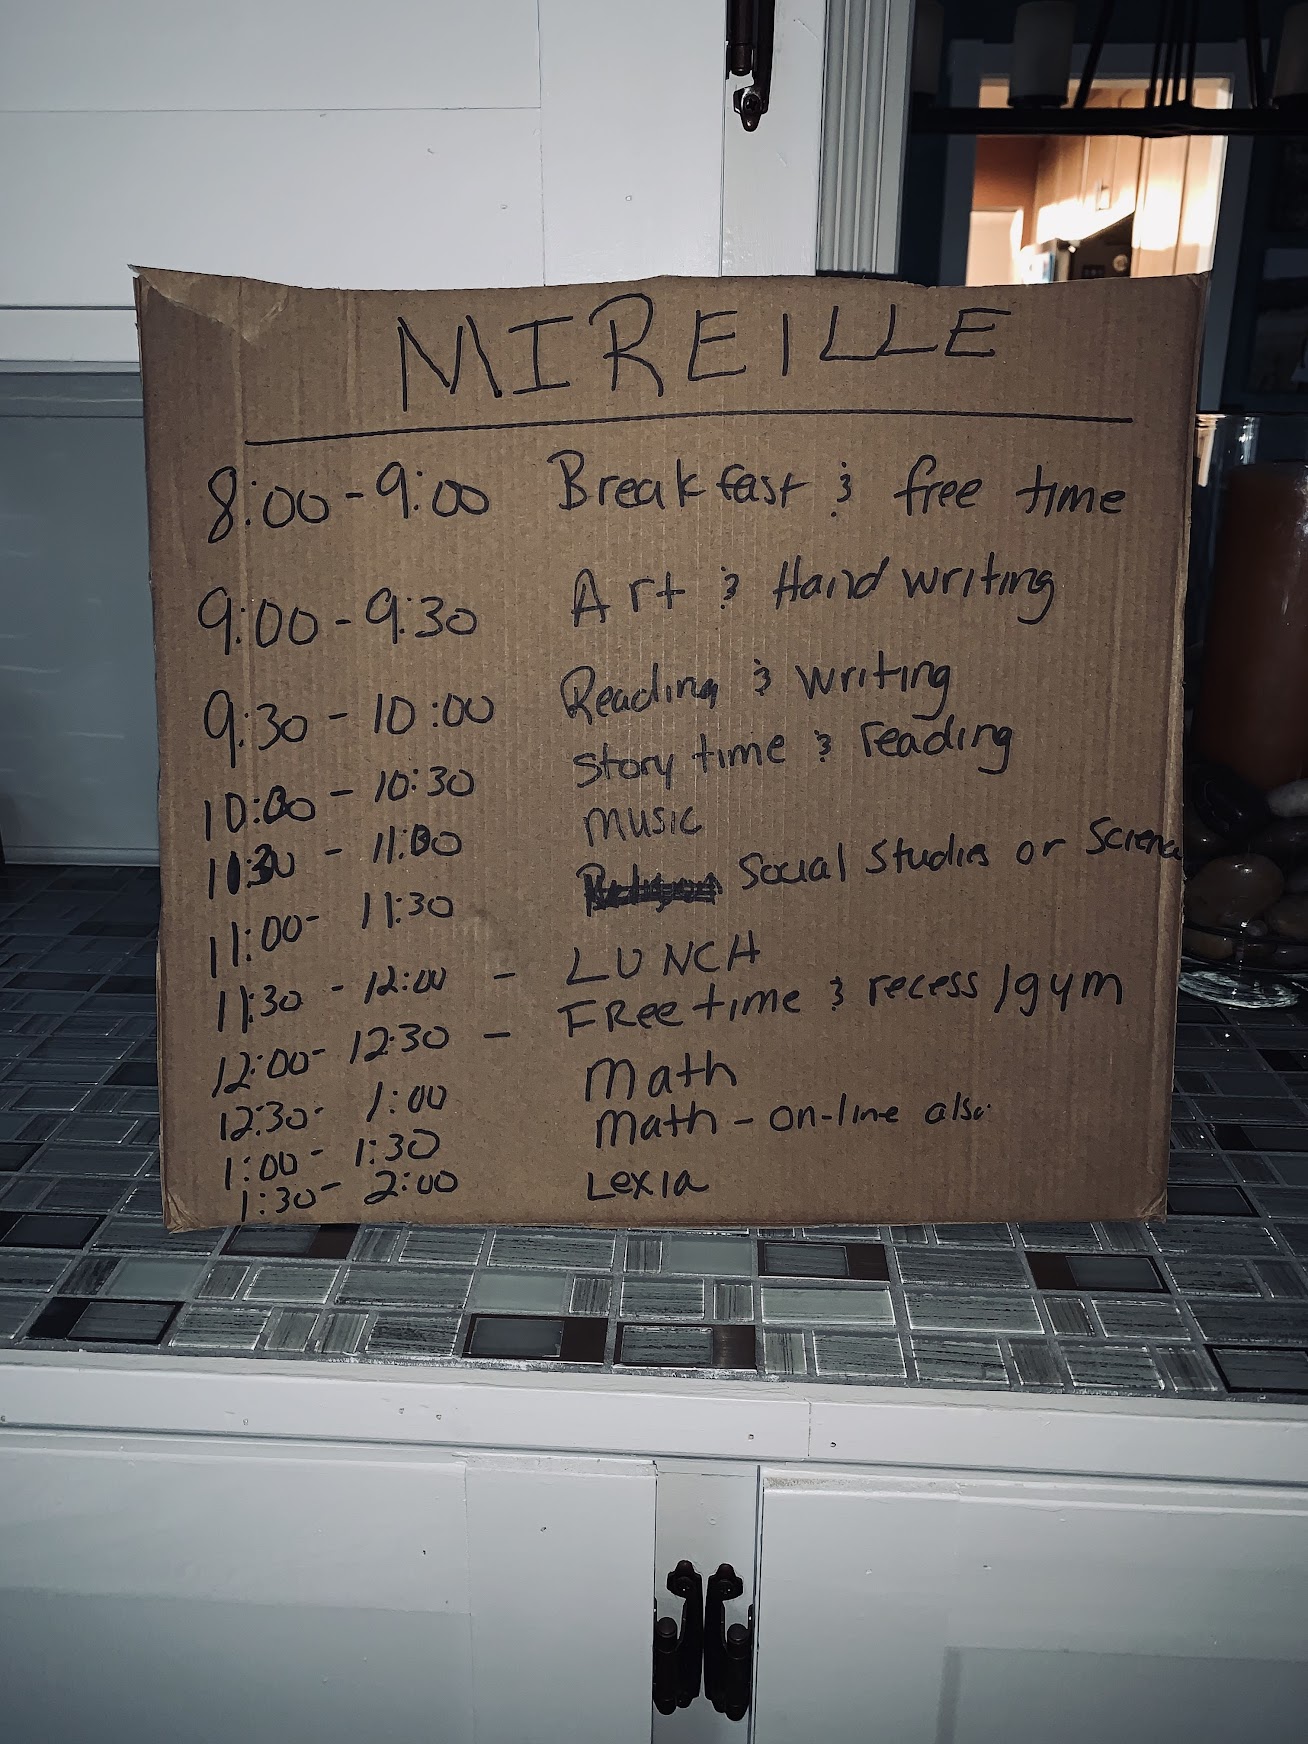 MIREILLE
8:00 - 9:00 Breakfast & free time
9:00 - 9:30 Art & Handwriting
9:30 - 10:00 Reading & writing
10:00 - 10:30 Story time & reading
- 11:00 music
11:00 - 11:30 Social Studies or Science
11:30 - 12:00 - LUNCH
12:00 - 12:30 - FRee time & recess /gym
12:30 - 1:00 Math
1:00 - 1:30 Math - on-line also
1:30 - 2:00 Lexia